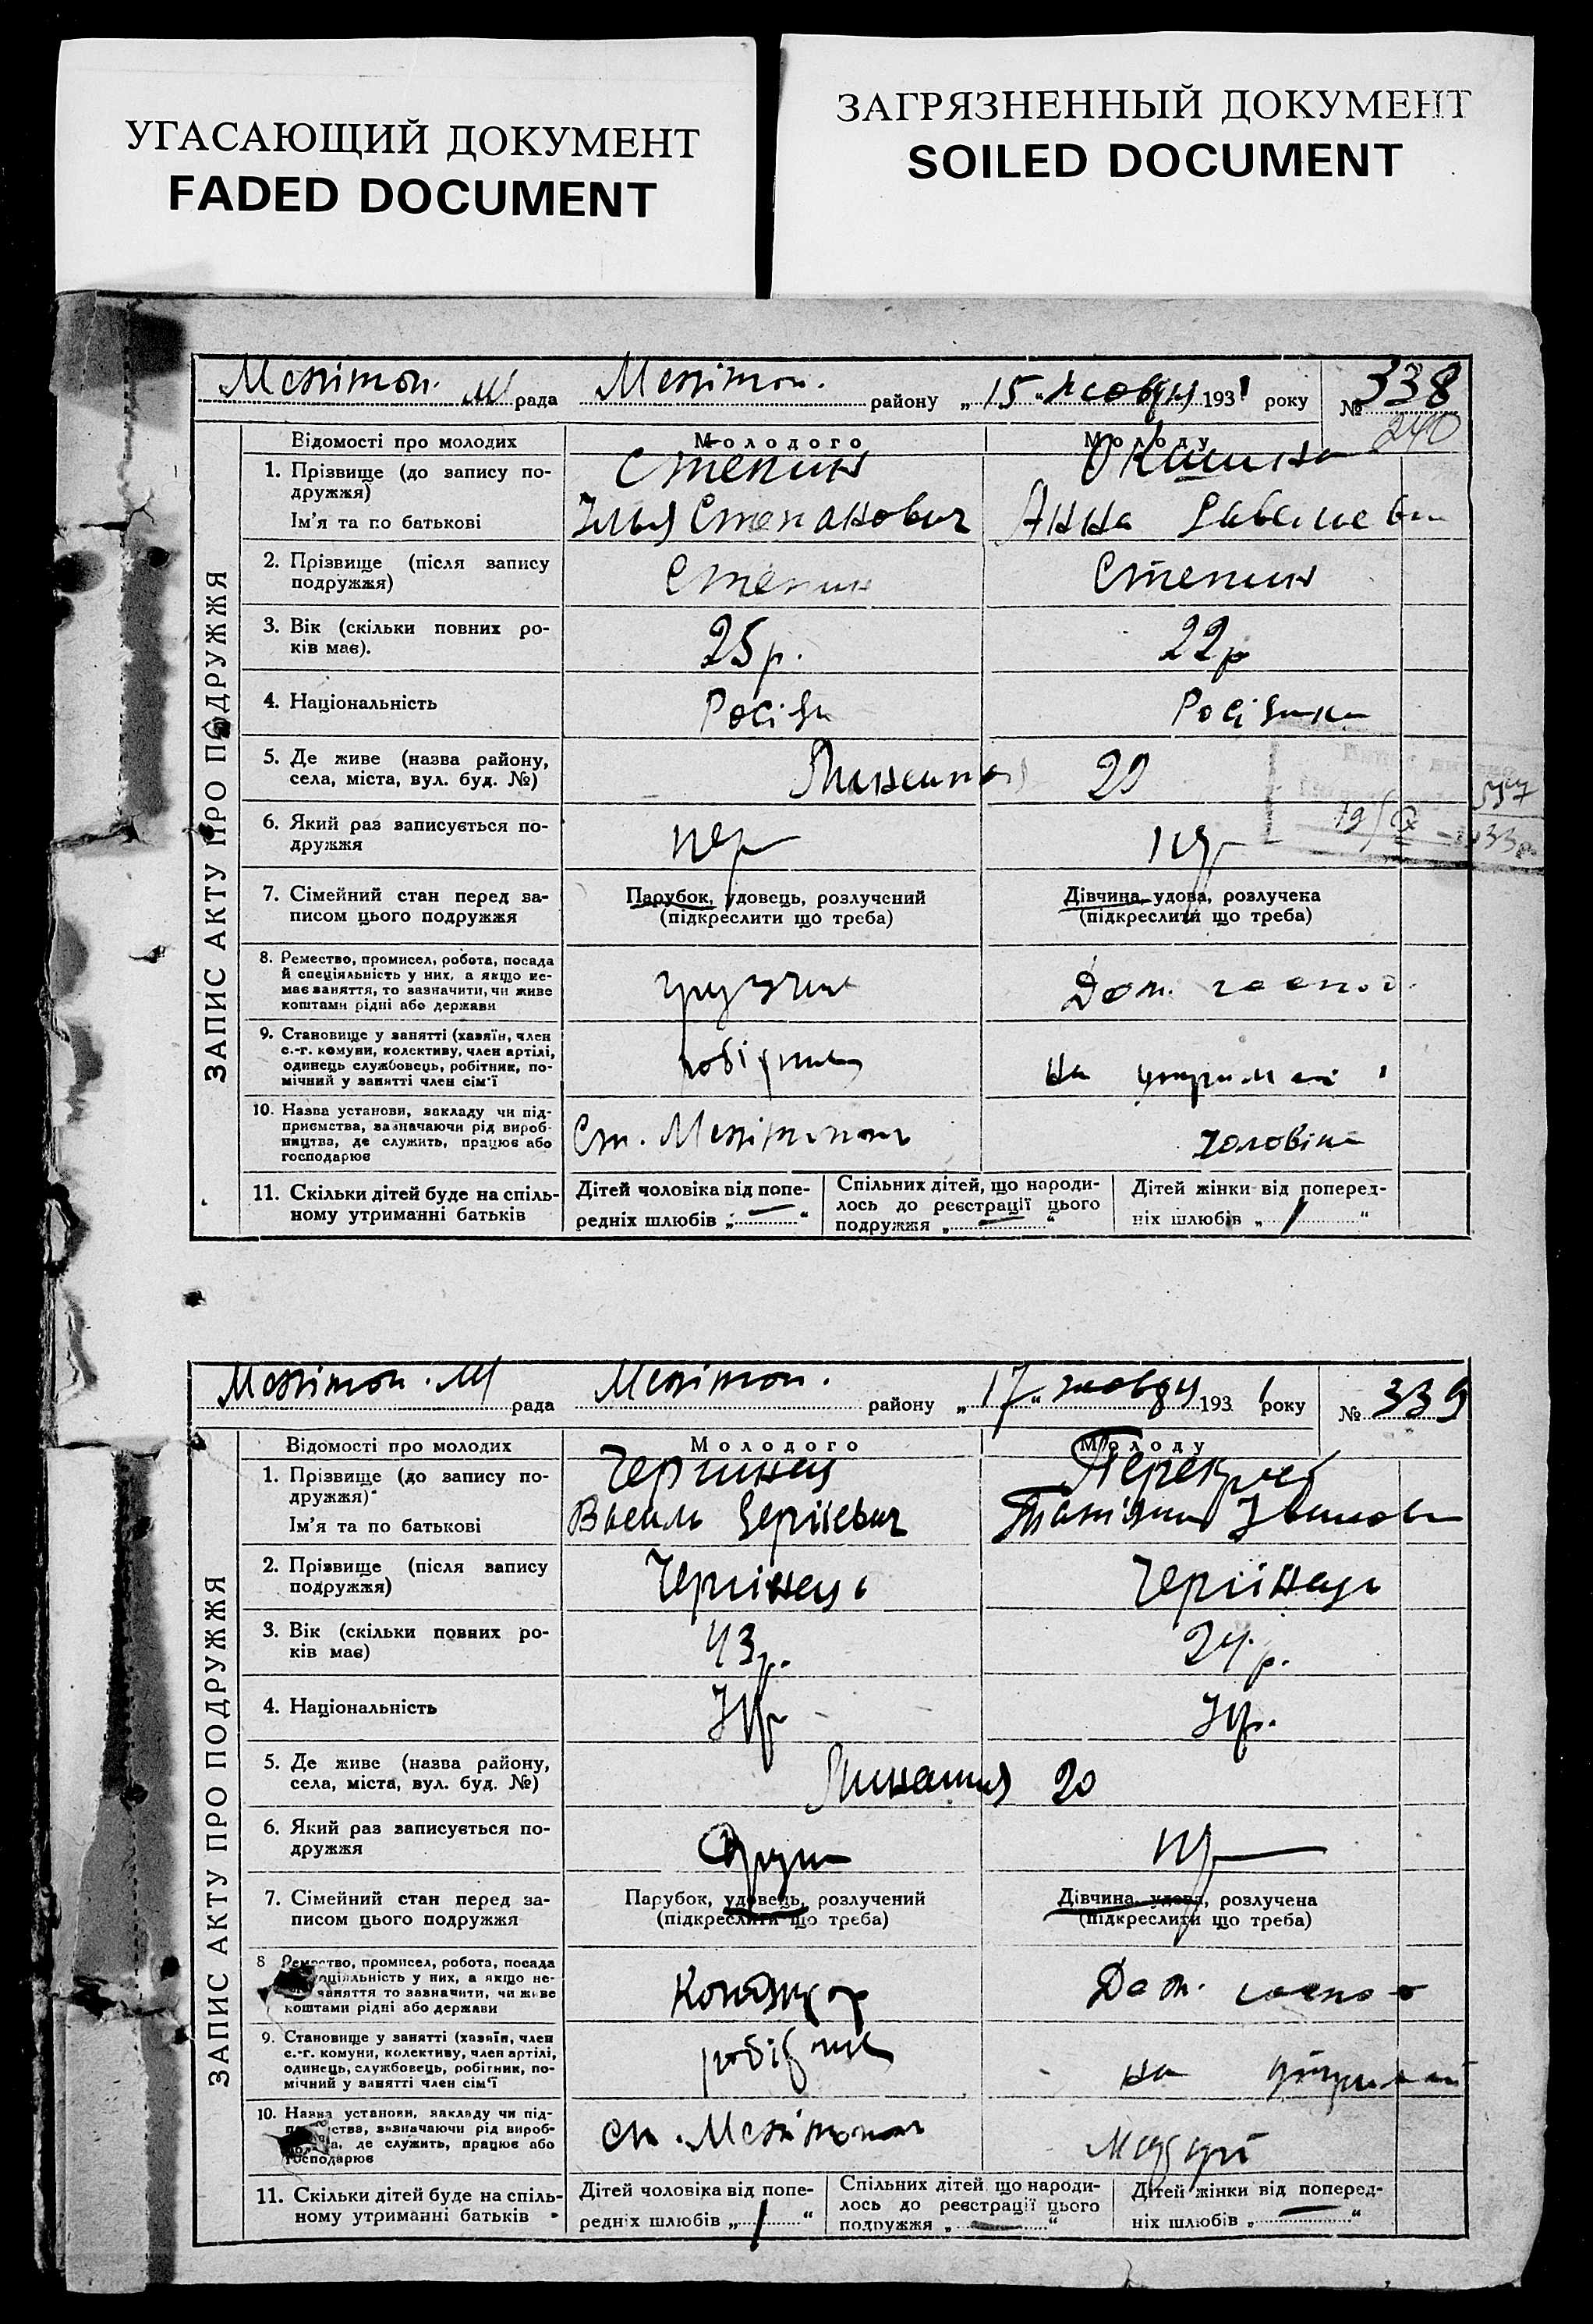 УГАСАЮЩИЙ ДОКУМЕНТ
FADED DOCUMENT
ЗАГРЯЗНЕННЫЙ ДОКУМЕНТ
SOILED DOCUMENT
рада району „15“ жовтня 1931 року № 338
240
ЗАПИС АКТУ ПРО ПОДРУЖЖЯ
Відомості про молодих
Молодого
Молоду
1. Прізвище (до запису по-
дружжя)
Ім'я та по батькові
Степин
Ілья Степанович
Анна
2. Прізвище (після запису
подружжя)
Степин
Степин
3. Вік (скільки повних ро-
ків має).
25 р.
22 р
4. Національність
5. Де живе (назва району,
села, міста, вул. буд. №)
29
6. Який раз записується по-
дружжя
пер
пер
7. Сімейний стан перед за-
писом цього подружжя
Парубок, удовець, розлучений
(підкреслити що треба)
Дівчина, удова, розлучена
(підкреслити що треба)
8. Ремество, промисел, робота, посада
й спеціяльність у них, а якщо не-
має заняття, то зазначити, чи живе
коштами рідні або держави
грузчик
Дом. господ.
9. Становище у занятті (хазяїн, член
с.-г. комуни, колективу, член артілі,
одинець службовець, робітник, по-
мічний у занятті член сім'ї
робітник
на утриманні
10. Назва установи, закладу чи під-
приємства, зазначаючи рід вироб-
ництва, де служить, працює або
господарює
Ст.
чоловіка
11. Скільки дітей буде на спіль-
ному утриманні батьків
Дітей чоловіка від попе-
редніх шлюбів „ — “
Спільних дітей, що народи-
лось до реєстрації цього
подружжя „ — “
Дітей жінки від поперед-
ніх шлюбів „ / “
рада району „17“ жовтня 1931 року № 339
ЗАПИС АКТУ ПРО ПОДРУЖЖЯ
Відомості про молодих
Молодого
Молоду
1. Прізвище (до запису по-
дружжя)
Ім'я та по батькові
Василь
2. Прізвище (після запису
подружжя)
3. Вік (скільки повних ро-
ків має)
43 р.
24 р.
4. Національність
Укр
Укр.
5. Де живе (назва району,
села, міста, вул. буд. №)
20
6. Який раз записується по-
дружжя
пер
7. Сімейний стан перед за-
писом цього подружжя
Парубок, удовець, розлучений
(підкреслити що треба)
Дівчина, удова, розлучена
(підкреслити що треба)
8 Ремество, промисел, робота, посада
спеціяльність у них, а якщо не-
заняття то зазначити, чи живе
коштами рідні або держави
Кондуктор
Дом. господ
9. Становище у занятті (хазяїн, член
с.-г. комуни, колективу, член артілі,
одинець, службовець, робітник, по-
мічний у занятті член сім'ї
робітник
на утриманні
10. Назва установи, закладу чи під-
приємства, зазначаючи рід вироб-
ництва, де служить, працює або
господарює
ст.
11. Скільки дітей буде на спіль-
ному утриманні батьків
Дітей чоловіка від попе-
редніх шлюбів „ / “
Спільних дітей що народи-
лось до реєстрації цього
подружжя „ — “
Дітей жінки від поперед-
ніх шлюбів „ — “